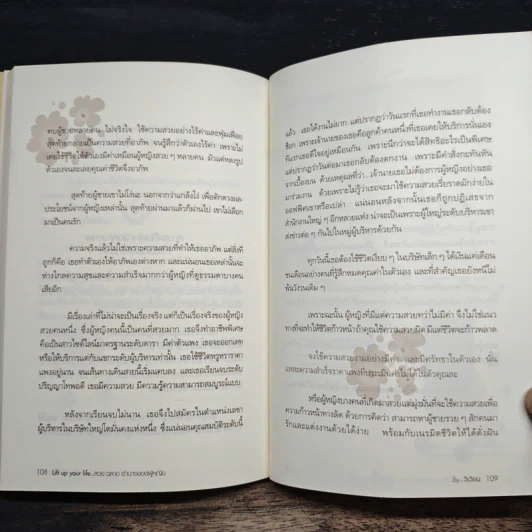 คบผู้ชายหลายคน ไม่จริงใจ ใช้ความสวยอย่างไร้ค่าและฟุ่มเฟือย
สุดท้ายกลายเป็นความสวยที่อาภัพ จนรู้สึกว่าตัวเองไร้ค่า เพราะไม่
เคยใช้ชีวิตให้ตัวเองมีค่าเหมือนผู้หญิงสวย ๆ หลายคน มัวแต่หลงรูป
ตัวเองจนละเลยคุณค่าชีวิตจึงอาภัพ
สุดท้ายผู้ชายเขาไม่โง่นะ นอกจากว่าแกล้งโง่ เพื่อตักตวงผล
ประโยชน์จากผู้หญิงเหล่านั้น สุดท้ายผ่านมาแล้วก็ผ่านไป เขาไม่เลือก
มาเป็นคนรัก
ความจริงแล้วไม่ใช่เพราะความสวยที่ทำให้เธออาภัพ แต่สิ่งที่
ถูกก็คือ เธอทำตัวเองให้อาภัพเองต่างหาก และแน่นอนเธอเหล่านั้นจะ
ห่างไกลความสุขและความสำเร็จมากกว่าผู้หญิงที่ดูธรรมดาบางคน
เสียอีก
มีเรื่องเล่าที่ไม่น่าจะเป็นเรื่องจริง แต่ก็เป็นเรื่องจริงของผู้หญิง
สวยคนหนึ่ง ซึ่งผู้หญิงคนนี้เป็นคนที่สวยมาก เธอจึงทำอาชีพพิเศษ
คือเป็นสาวไซด์ไลน์มาตรฐานระดับดารา มีค่าตัวแพง เธอจะออกเดท
หรือให้บริการแต่กับแขกระดับผู้บริหารเท่านั้น เธอใช้ชีวิตหรูหราราคา
แพงอยู่นาน จนเส้นทางเดินสายนี้เริ่มแคบลง และเธอเรียนจบระดับ
ปริญญาโทพอดี เธอมีความสวย มีความรู้ความสามารถสมบูรณ์แบบ
หลังจากเรียนจบไม่นาน เธอจึงไปสมัครในตำแหน่งเลขา
ผู้บริหารในบริษัทใหญ่โตมั่นคงแห่งหนึ่ง ซึ่งแน่นอนคุณสมบัติระดับนี้
108 Lift up your life...สวย ฉลาด อำนาจของผู้หญิง
แล้ว เธอได้งานไม่ยาก แต่ปรากฏว่าวันแรกที่เธอทำงานเธอกลับต้อง
ช็อก เพราะเจ้านายของเธอคือลูกค้าคนหนึ่งที่เธอเคยให้บริการนั่นเอง
ทีแรกเธอดีใจอยู่เหมือนกัน เพราะนึกว่าจะได้สิทธิอะไรเป็นพิเศษ
แต่ปรากฏว่าวันต่อมาเธอกลับต้องตกงาน เพราะมีคำสั่งกะทันหัน
จากเบื้องบน ด้วยเหตุผลที่ว่า...เจ้านายเธอไม่ต้องการผู้หญิงอย่างเธอ
มาร่วมงาน ด้วยเพราะไม่รู้ว่าเธอจะมาใช้ความสวยเรี่ยราดมักง่ายใน
ออฟฟิศเขาหรือเปล่า แน่นอนหลังจากนั้นเธอก็ถูกปฏิเสธจาก
สำนักงานใหญ่ ๆ อีกหลายแห่ง น่าจะเป็นเพราะผู้ใหญ่ระดับบริหารเขา
ส่งข่าวต่อ ๆ กันไปในหมู่ผู้บริหารด้วยกัน
ทุกวันนี้เธอต้องใช้ชีวิตเงียบ ๆ ในบริษัทเล็ก ๆ ได้เงินแค่เดือน
ชนเดือนอย่างคนที่รู้สึกหมดคุณค่าในตัวเอง และที่สำคัญเธอยังหนีไม่
พ้นวังวนเดิม ๆ
เพราะฉะนั้น ผู้หญิงที่มีแต่ความสวยทว่าไม่มีค่า จึงไม่ใช่แนว
ทางที่จะทำให้ชีวิตก้าวหน้าถ้าคุณใช้ความสวยผิด มีแต่ชีวิตจะก้าวพลาด
จงใช้ความสวยงามอย่างมีค่า และมีศรัทธาในตัวเอง นั่น
แหละความสำเร็จราคาแพงที่ประเมินค่าไม่ได้ในตัวคุณละ
หรือผู้หญิงบางคนก็เกิดมาสวยแต่มุ่งมั่นที่จะใช้ความสวยเพื่อ
ความก้าวหน้าทางลัด ด้วยการคิดว่า สามารถหาผู้ชายรวย ๆ สักคนมา
รักและแต่งงานด้วยได้ง่าย พร้อมกับเนรมิตชีวิตให้ได้ดั่งฝัน
By...วิเวียน 109